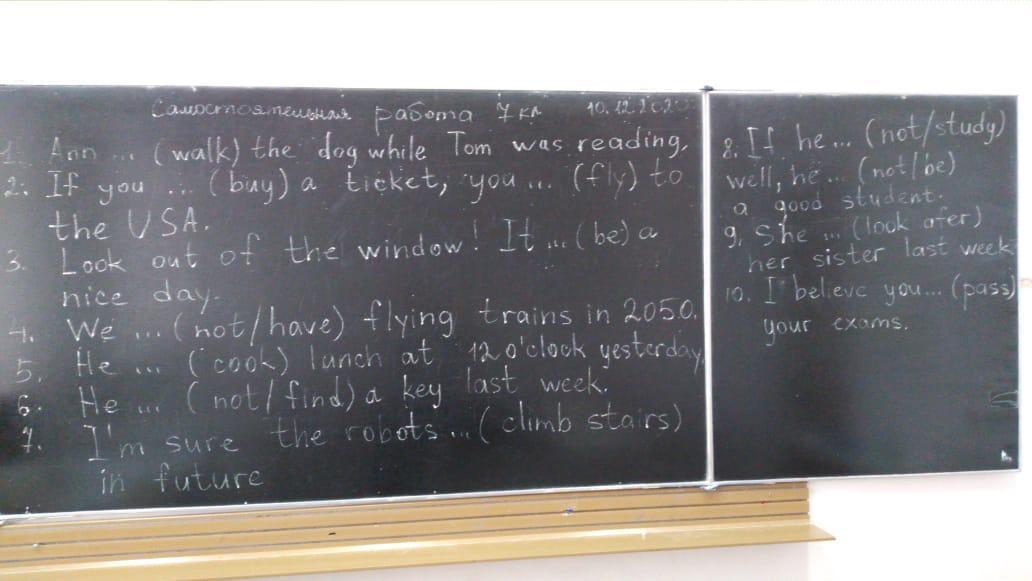 Самостоятельная работа 7 кл 10.12.2020
1. Ann ... (walk) the dog while Tom was reading.
2. If you ... (buy) a ticket, you ... (fly) to
the USA.
3. Look out of the window! It ... (be) a
nice day.
4. We ... (not/have) flying trains in 2050.
5. He ... (cook) lunch at 12 o'clock yesterday.
6. He ... (not/find) a key last week.
7. I'm sure the robots ... (climb stairs)
in future
8. If he ... (not/study)
well, he ... (not/be)
a good student.
9. She ... (look afer)
her sister last week
10. I believe you ... (pass)
your exams.